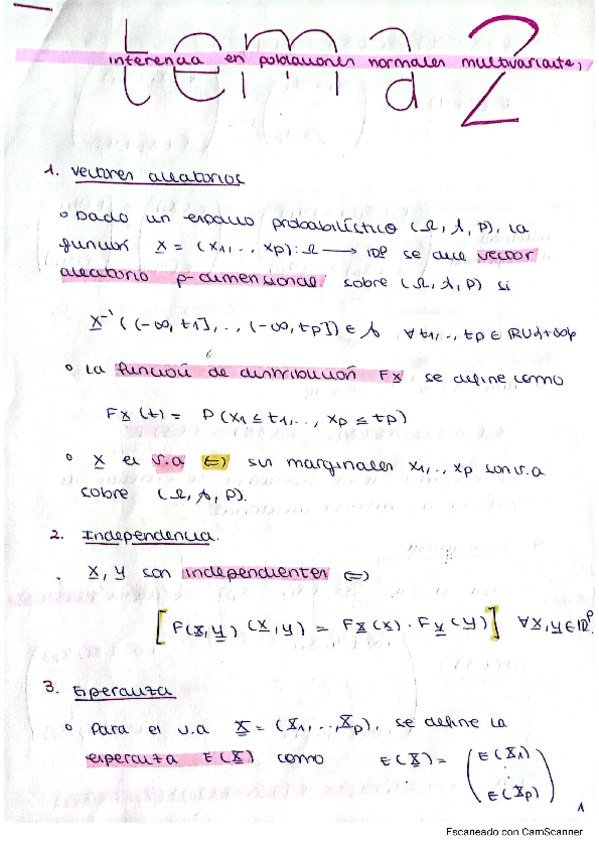 tema 2
inferencia en poblaciones normales multivariantes
1. Vectores aleatorios
o Dado un espacio probabilístico (Ω, A, P), la
función X = (X1,.., Xp): Ω → IRP se dice vector
aleatorio p-dimensional sobre (Ω, A, P) si
X⁻¹((-∞, t1],.., (-∞, tp]) ∈ A ∀t1,.., tp ∈ IRU{+∞}p
o La función de distribución FX se define como
FX(t) = P(X1 ≤ t1,.., Xp ≤ tp)
o X es v.a ⇔ sus marginales X1,.., Xp son v.a
sobre (Ω, A, P).
2. Independencia.
X, Y son independientes ⇔
[F(X,Y) (X,y) = FX(x) · FY(y)] ∀X,y ∈ IRP
3. Esperanza
o Para el v.a X = (X1,..,Xp), se define la
esperanza E(X) como E(X) = (E(X1)
:
E(Xp))
1
Escaneado con CamScanner